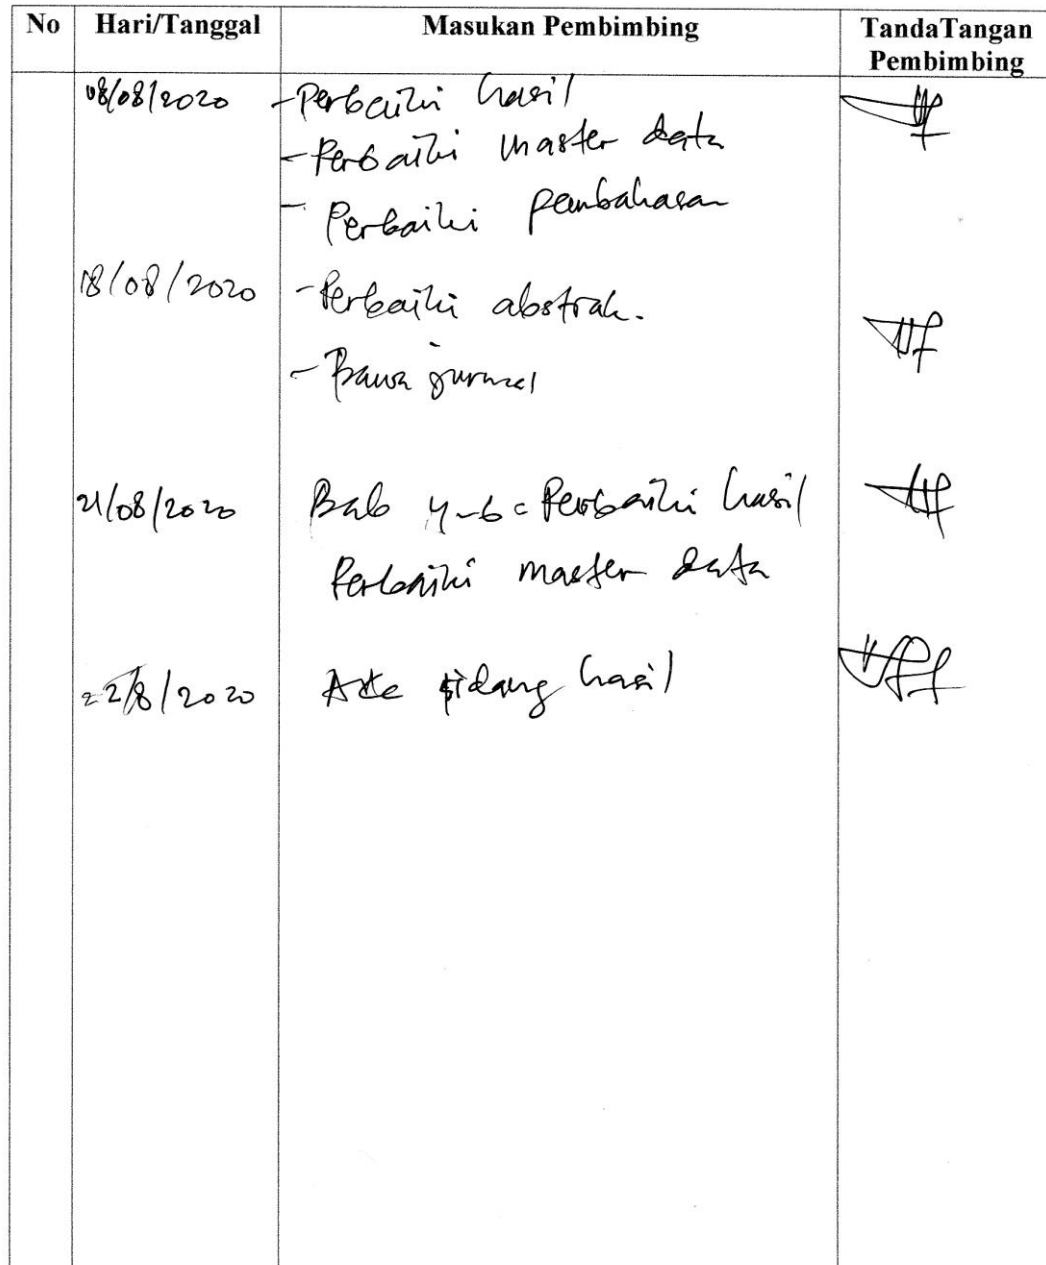 No Hari/Tanggal Masukan Pembimbing TandaTangan
Pembimbing
08/08/2020 - Perbaiki hasil
- Perbaiki master data
- Perbaiki pembahasan
18/08/2020 - Perbaiki abstrak.
- Bawa jurnal
21/08/2020 Bab 4-6 = Perbaiki hasil
Perbaiki master data
22/8/2020 Acc sidang hasil